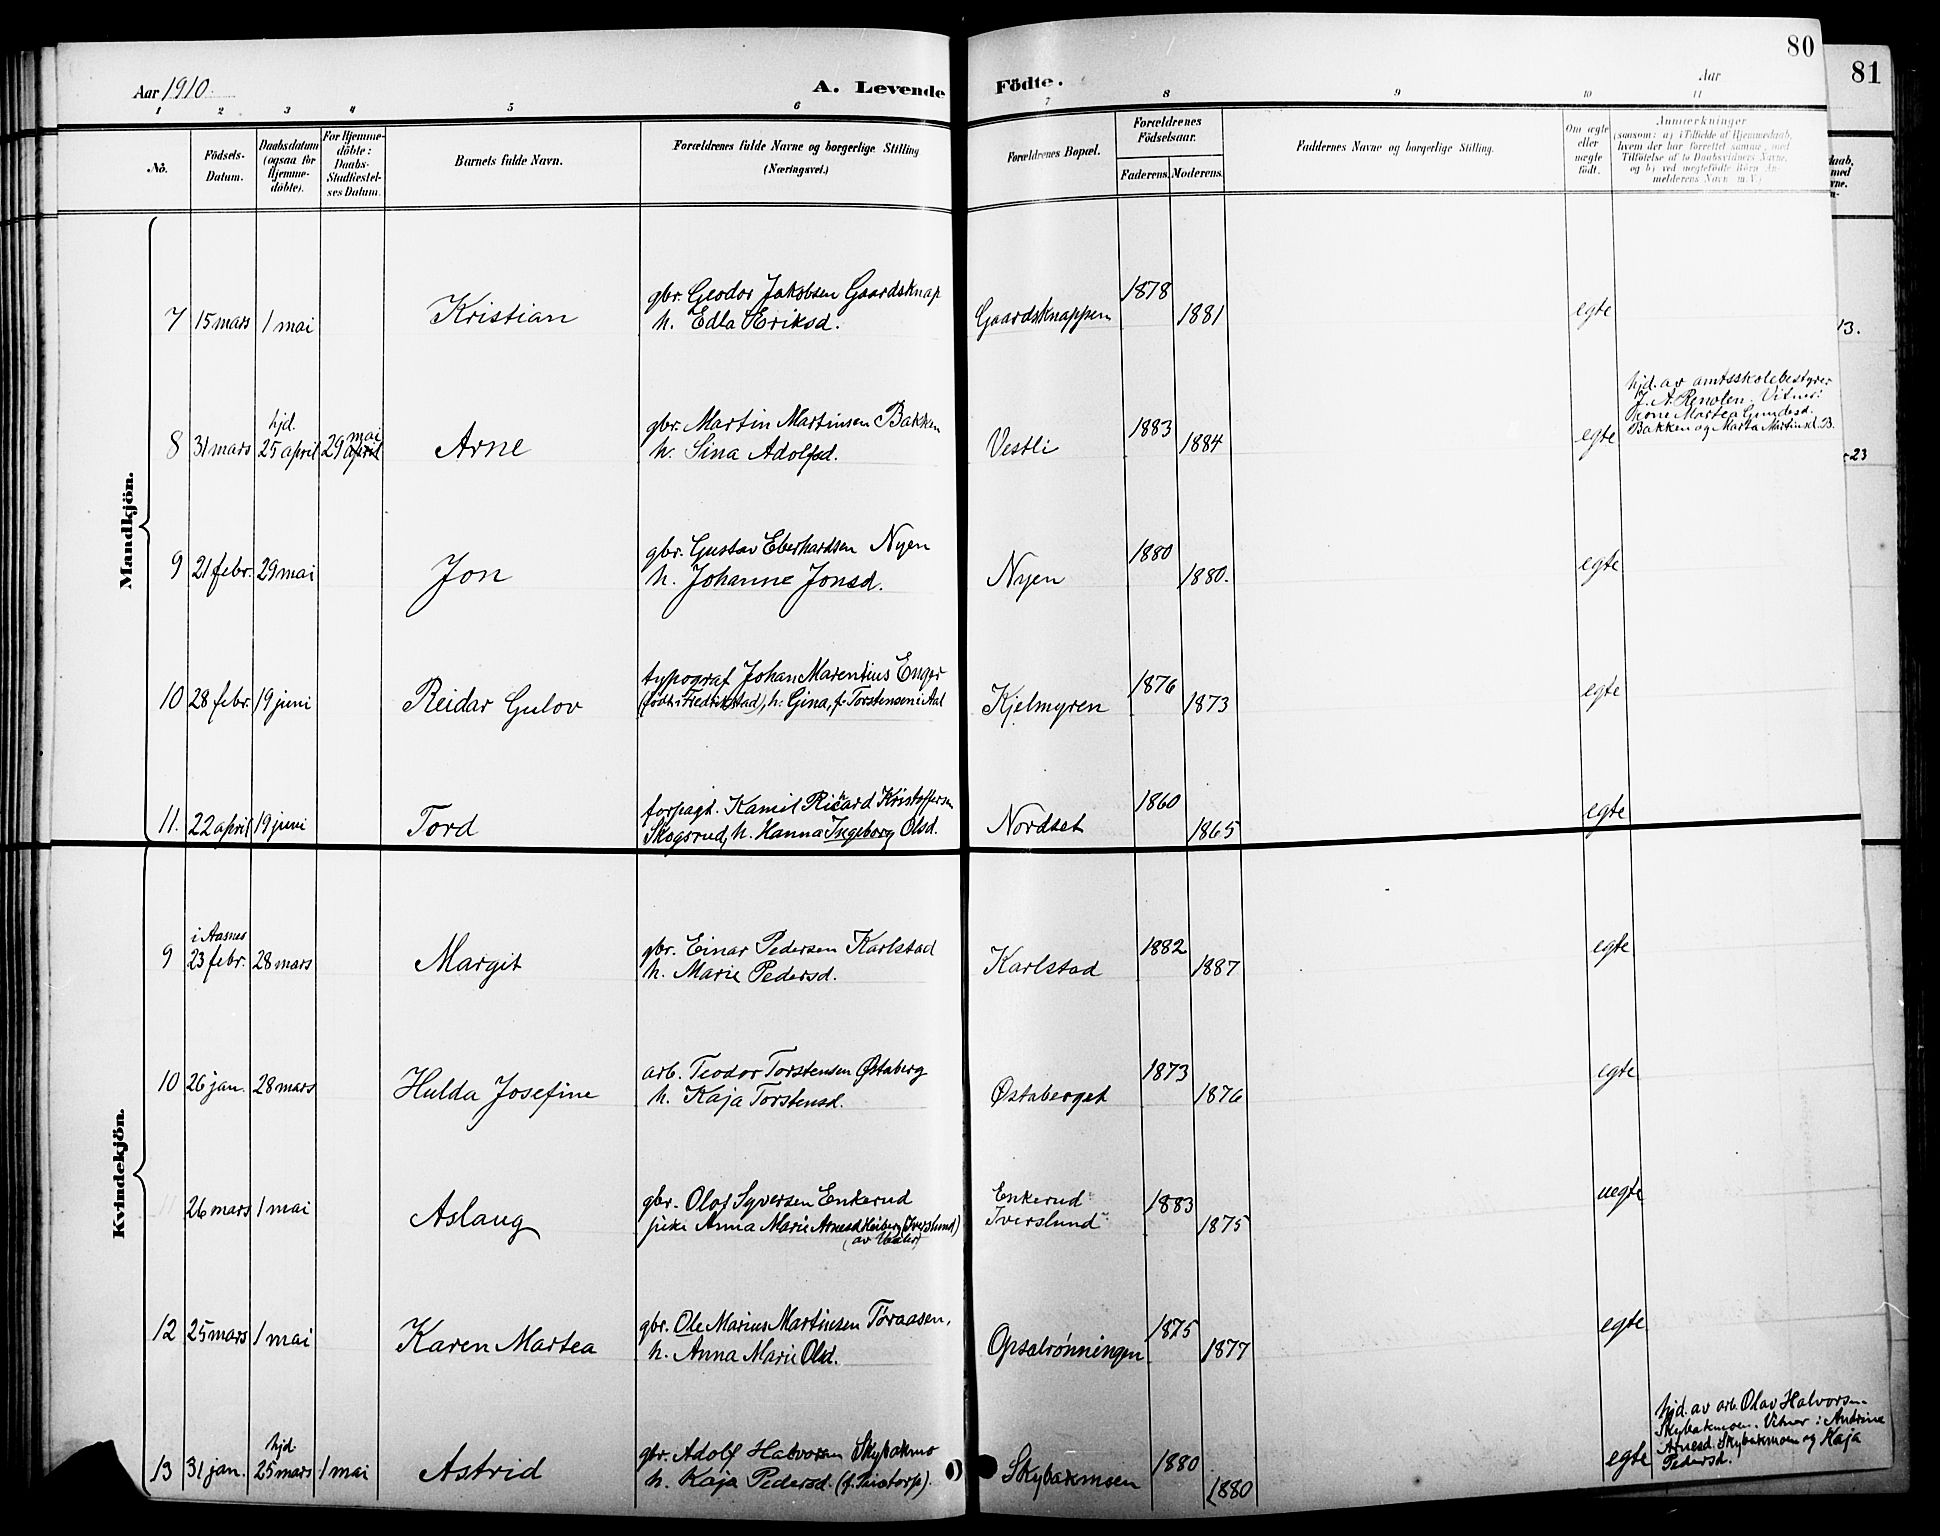 80
81
Aar 1910.
A. Levende Födte.
Aar
1 2 3 4 5 6 7 8 9 10 11
No.
Födsels-
Datum.
Daabsdatum
(ogsaa for
Hjemme-
döbte).
For Hjemme-
döbte:
Daabs-
Stadfæstel-
ses Datum.
Barnets fulde Navn.
Forældrenes fulde Navne og borgerlige Stilling
(Næringsvei.)
Forældrenes Bopæl.
Forældrenes
Födselsaar.
Faderens. Moderens.
Faddernes Navne og borgerlige Stilling.
Om ægte
eller
uægte
födt.
Anmærkninger
(saasom: a) i Tilfælde af Hjemmedaab,
hvem der har forrettet samme, med
Tilföielse af to Daabsvidners Navne,
og b) ved uægtefödte Börn An-
melderens Navn m. V.)
Mandkjön.
gbr. Geodor Jakobsen Gaardsknap
7 15 mars 1 mai Kristian h. Edla Eriksd. Gaardsknappen 1878 1881 egte
13.
hjd. av amtsskolebestyrer
J. A. Renolen. Vitner:
Bakken og Marta Martinsd. B.
hjd. mai
gbr. Martin Martinsen Bakken
8 31 mars 25 april 29 april Arne h. Sina Adolfsd. Vestli 1883 1884 egte
-23
gbr. Gustav Eberhardsen Nyen
9 21 febr. 29 mai Jon h. Johanne Jonsd. Nyen 1880 1880. egte
typograf Johan Marentius Enger
10 28 febr. 19 juni Reidar Gulov (født i Fredrikstad), h. Gina, f. Torstensen i Aal Kjelmyren 1876 1873 egte
forpagt. Kamil Rikard Kristoffersen
11. 22 april 19 juni Tord Skogsrud, h. Hanna Ingeborg Olsd. Nordset 1860 1865 egte
Kvindekjön.
i Aasnes
gbr. Einar Pedersen Karlstad
9 23 febr. 28 mars Margit h. Marie Pedersd. Karlstad 1882 1887 egte
arb. Teodor Torstensen Østaberg
10 26 jan. 28 mars Hulda Josefine h. Kaja Torstensd. Østaberget 1873 1876 egte
gbr. Olof Syversen Enkerud Enkerud
11 26 mars 1 mai Aslaug pike Anna Marie Arnesd. (Iverslund) Iverslund 1883 1875 uegte
gbr. Ole Marius Martinsen Toraasen,
12 25 mars 1 mai Karen Martea h. Anna Marie Olsd. Opsalrønningen 1875 1877 egte
hjd. av arb. Olav Halvorsen
Skybakmoen. Vitner: Andrine
Arnesd. Skybakmoen og Kaja
Pedersd.
hjd.
gbr. Adolf Halvorsen Skybakmo
13 31 jan. 25 mars 1 mai Astrid h. Kaja Pedersd. Skybakmoen 1880 1880 egte